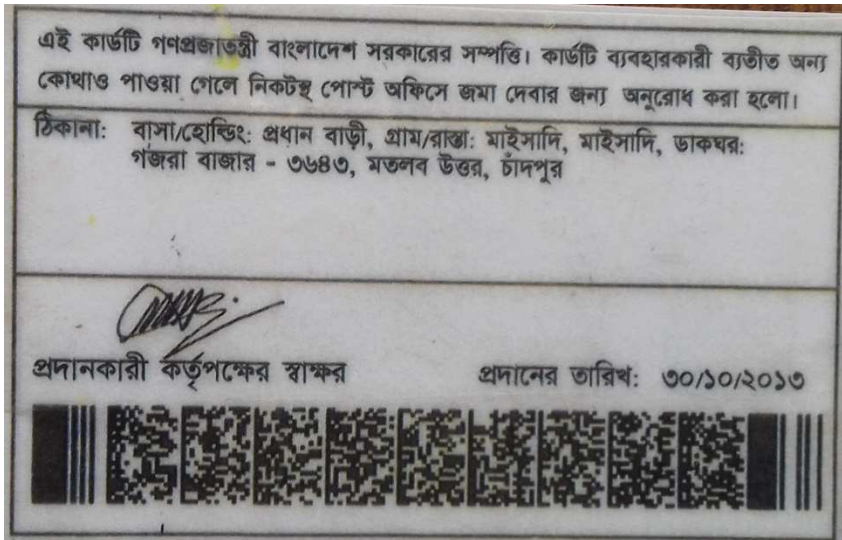 এই কার্ডটি গণপ্রজাতন্ত্রী বাংলাদেশ সরকারের সম্পত্তি। কার্ডটি ব্যবহারকারী ব্যতীত অন্য
কোথাও পাওয়া গেলে নিকটস্থ পোস্ট অফিসে জমা দেবার জন্য অনুরোধ করা হলো।
ঠিকানা: বাসা/হোল্ডিং: প্রধান বাড়ী, গ্রাম/রাস্তা: মাইসাদি, মাইসাদি, ডাকঘর:
গজরা বাজার - ৩৬৪৩, মতলব উত্তর, চাঁদপুর
প্রদানকারী কর্তৃপক্ষের স্বাক্ষর প্রদানের তারিখ: ৩০/১০/২০১৩